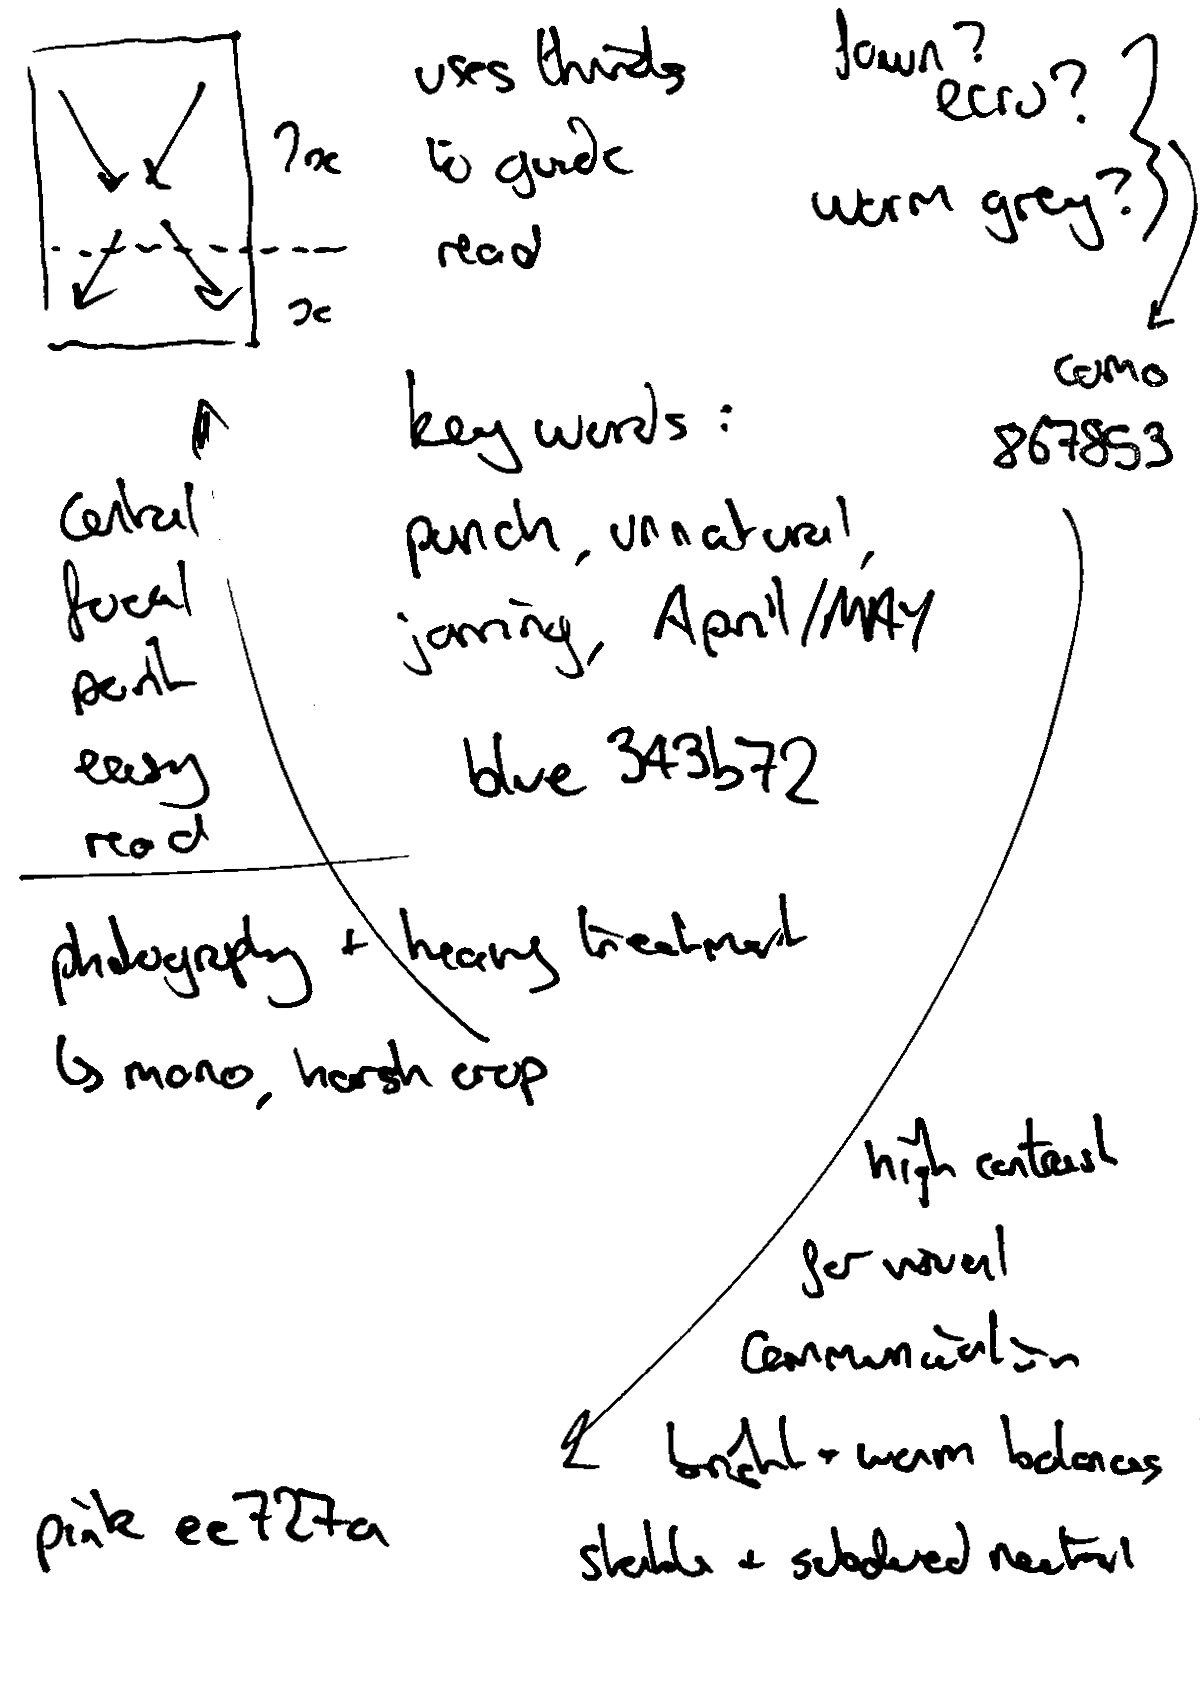 uses thirds
to guide
read
2x
x
fawn?
ecru?
warm grey?
camo
867853
central
focal
point
easy
read
key words:
punch, unnatural,
jarring, April/MAY
blue 343b72
photography + heavy treatment
↳ mono, harsh crop
high contrast
for visual
communication
bright + warm balances
stable + subdued neutral
pink ee727a